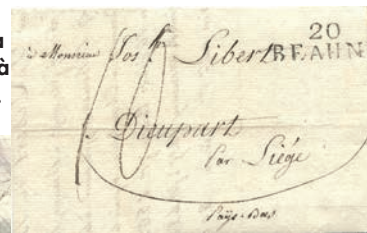 à
20
BEAUNE
à Monsieur Jos Libert
Dieupart
par Liége
Pays-Bas